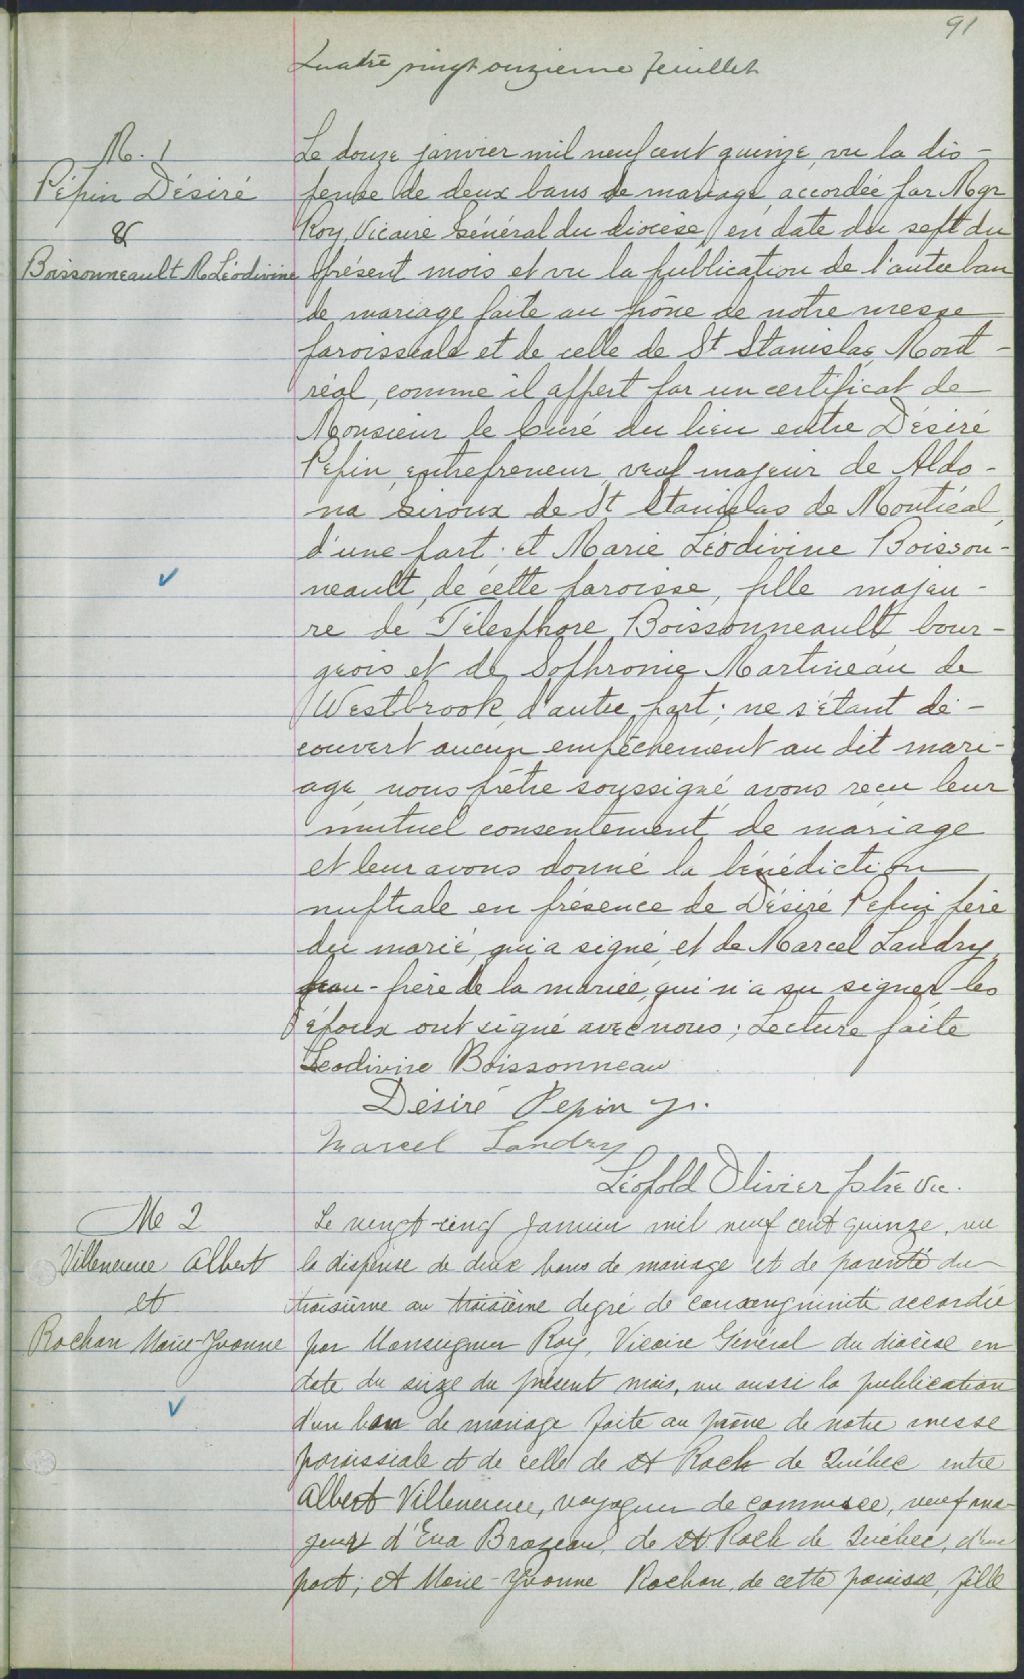 91
Quatre vingt onzieme feuillet
M. 1
Pépin Désiré
&
Boissonneault M Léodivine
Le douze janvier mil neuf cent quinze, vu la dis-
pense de deux bans de mariage accordée par Mgr
Roy, Vicaire Général du diocèse en date du sept du
présent mois et vu la publication de l'autre ban
de mariage faite au prône de notre messe
paroissiale et de celle de St Stanislas, Mont-
réal, comme il appert par un certificat de
Monsieur le Curé du lieu entre Désiré
Pepin, entrepreneur, veuf majeur de Aldo-
na Giroux de St Stanislas de Montréal,
d'une part; et Marie Léodivine Boisson-
neault, de cette paroisse, fille majeu-
re de Télesphore Boissonneault bour-
geois et de Sophronie Martineau de
Westbrook, d'autre part; ne s'étant dé-
couvert aucun empêchement au dit mari-
age nous prêtre soussigné avons reçu leur
mutuel consentement de mariage
et leur avons donné la bénédiction
nuptiale en présence de Désiré Pepin, père
du marié, qui a signé et de Marcel Landry,
beau-frère de la mariée, qui n'a su signer les
époux ont signé avec nous; Lecture faite
Leodivine Boissonneau
Désiré Pepin jr.
Marcel Landry
Léopold Olivier ptre Vic.
M 2
Villeneuve Albert
et
Rochon Marie-Yvonne
Le vingt-cinq Janvier mil neuf cent quinze, vu
la dispense de deux bans de mariage et de parenté du
troisième au troisième degré de consanguinité accordée
par Monseigneur Roy, Vicaire Général du diocèse en
date du seize du présent mois, vu aussi la publication
d'un ban de mariage faite au prône de notre messe
paroissiale et de celle de St Roch de Québec entre
Albert Villeneuve, voyageur de commerce, veuf ma-
jeur d'Eva Brazeau, de St Roch de Québec, d'une
part; et Marie-Yvonne Rochon, de cette paroisse, fille